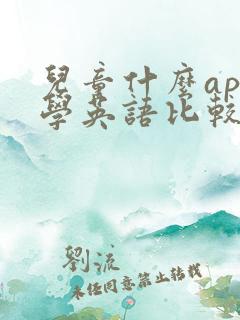 兒童什麼ap
學英語比較
劉流
未經同意禁止轉載